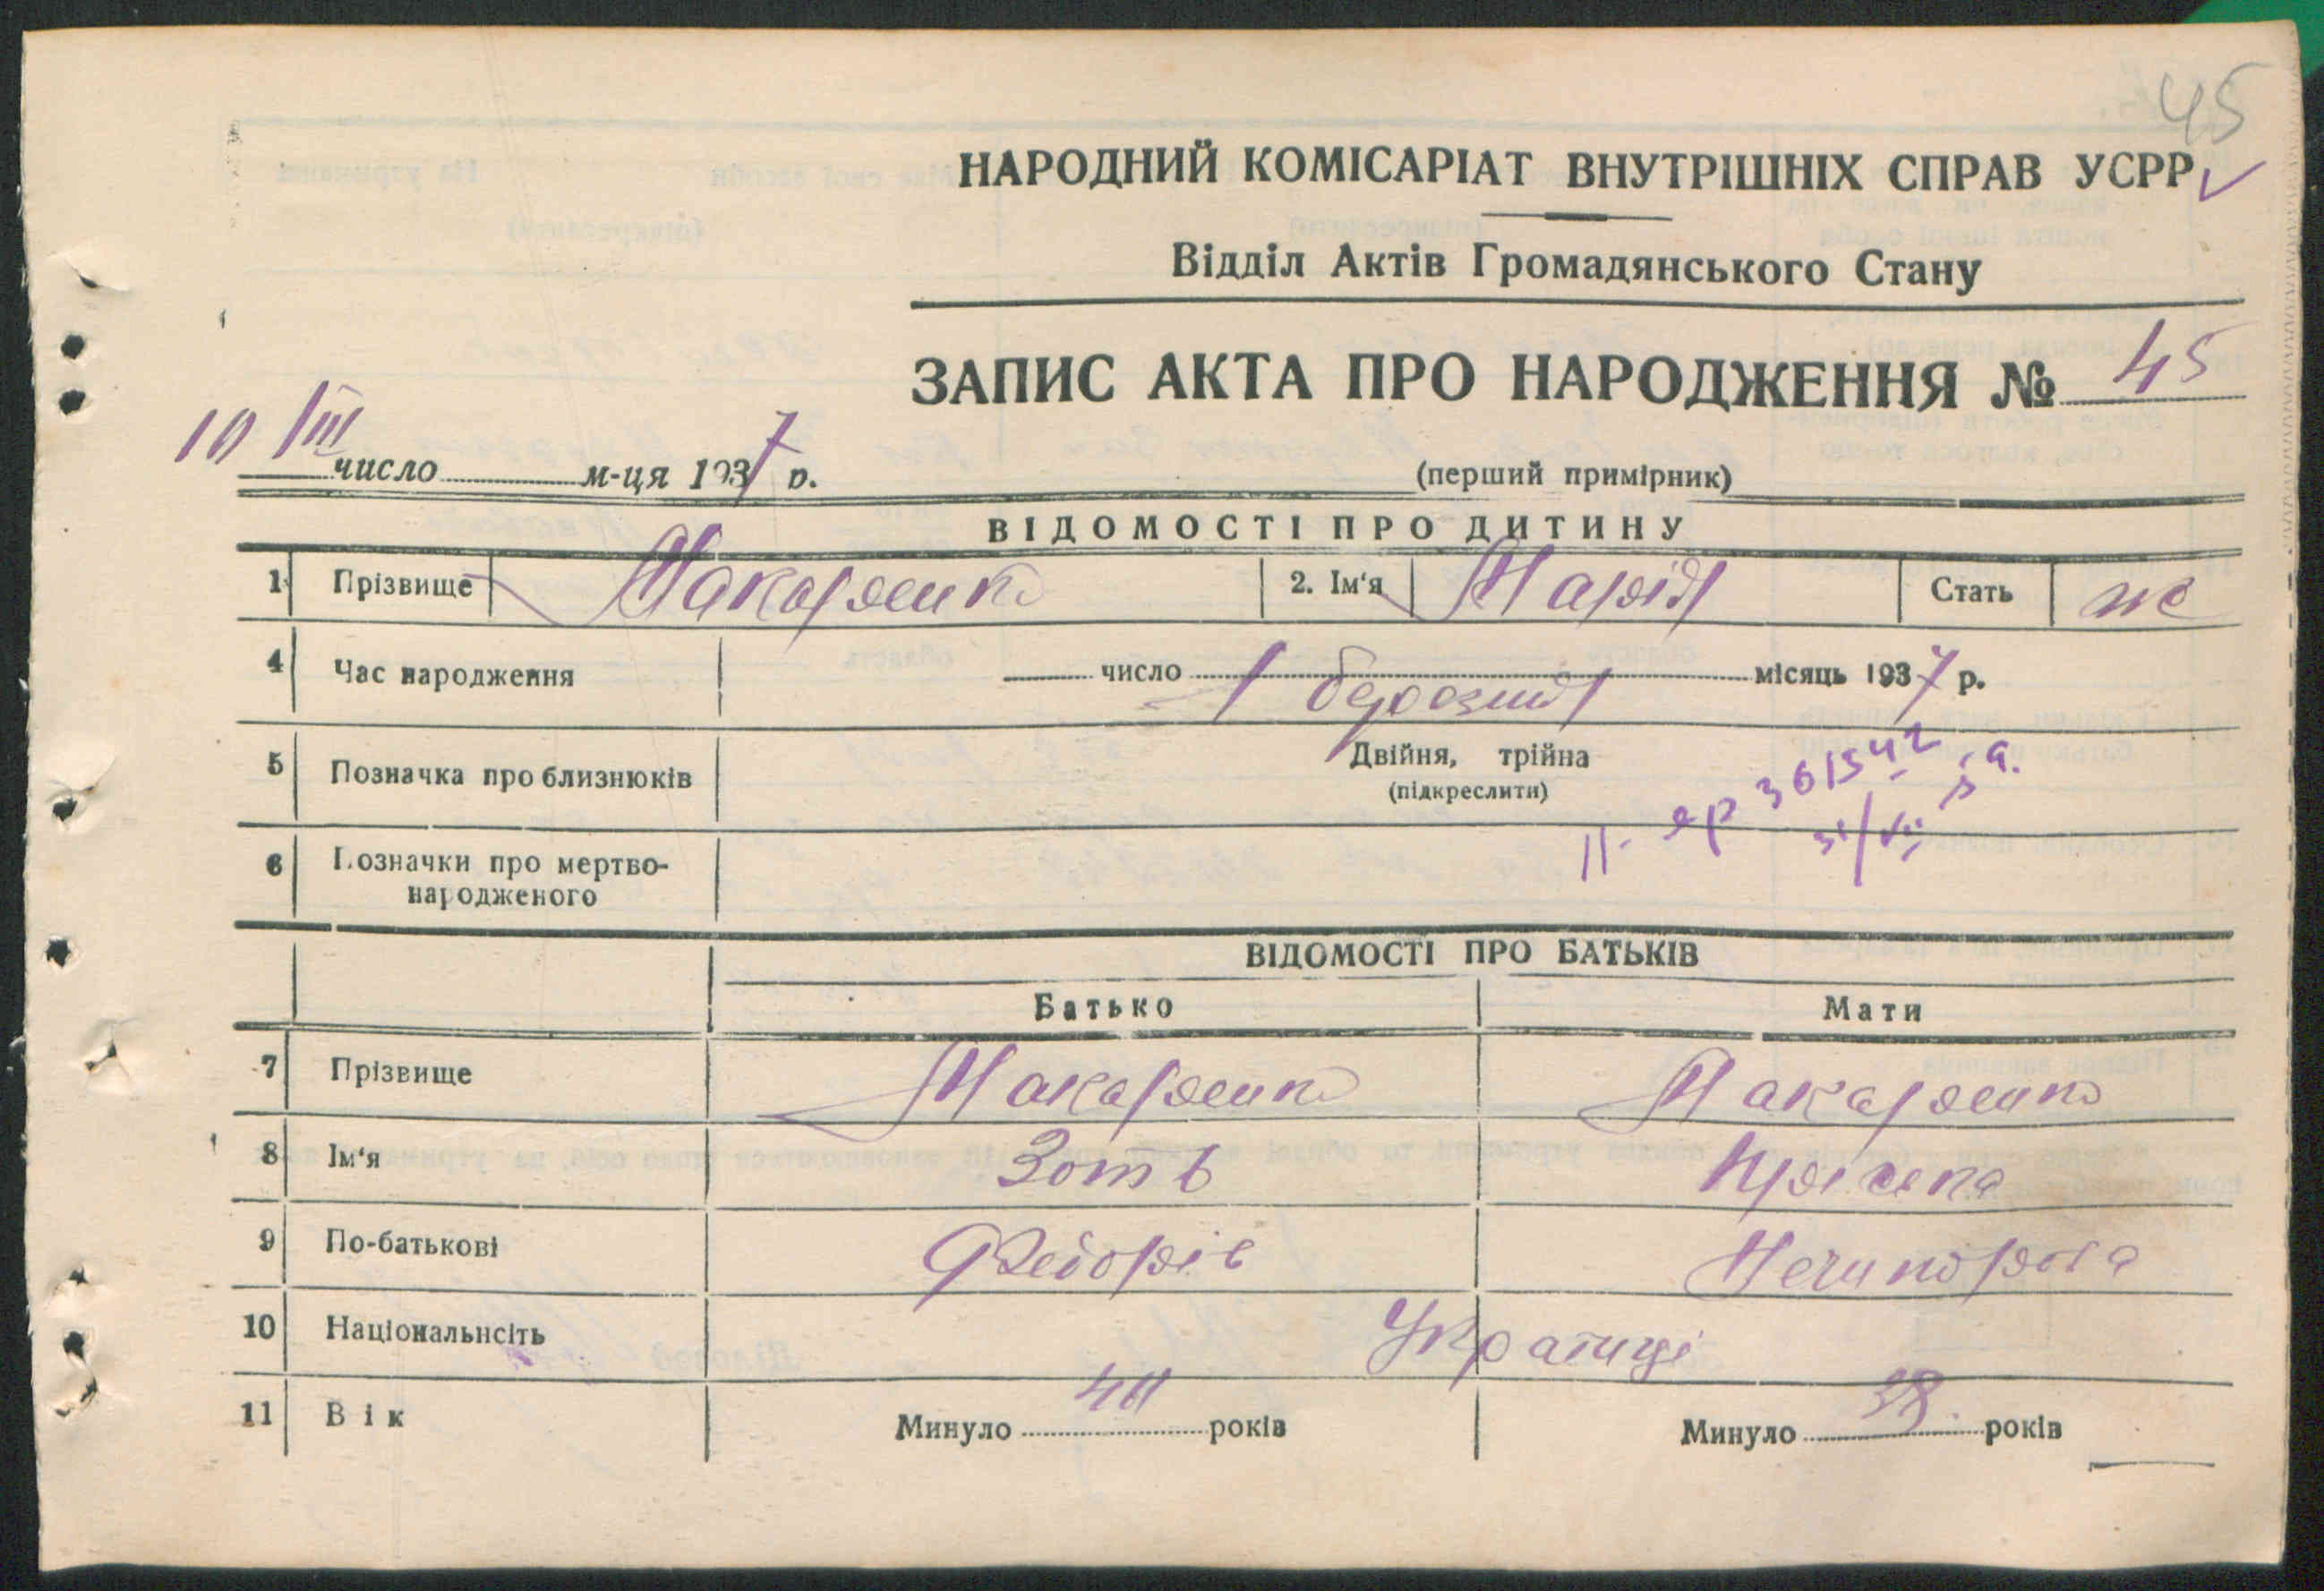 45
НАРОДНИЙ КОМІСАРІАТ ВНУТРІШНІХ СПРАВ УСРР
Відділ Актів Громадянського Стану
ЗАПИС АКТА ПРО НАРОДЖЕННЯ № 45
10/III число м-ця 1937 р.
(перший примірник)
ВІДОМОСТІ ПРО ДИТИНУ
1 Прізвище Макаренко 2. Ім'я Марія Стать ж
4 Час народження число 1 березня місяць 1937 р.
5 Позначка про близнюків Двійня, трійна
(підкреслити)
6 Позначки про мертво-
народженого
ВІДОМОСТІ ПРО БАТЬКІВ
Батько Мати
7 Прізвище Макаренко Макаренко
8 Ім'я Зотъ
9 По-батькові Федорів
10 Національнсіть Українці
11 Вік Минуло років Минуло 38 років